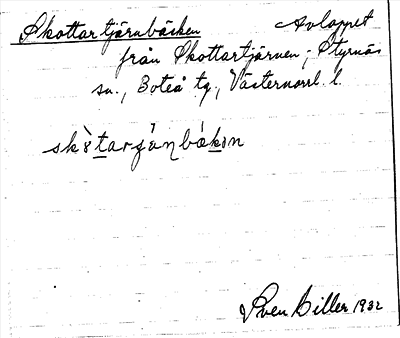 Skottartjärnbäcken Avloppet
från Skottartjärnen, Styrnäs
sn., Boteå tg., Västernorrl. l.
Sven Biller 1932